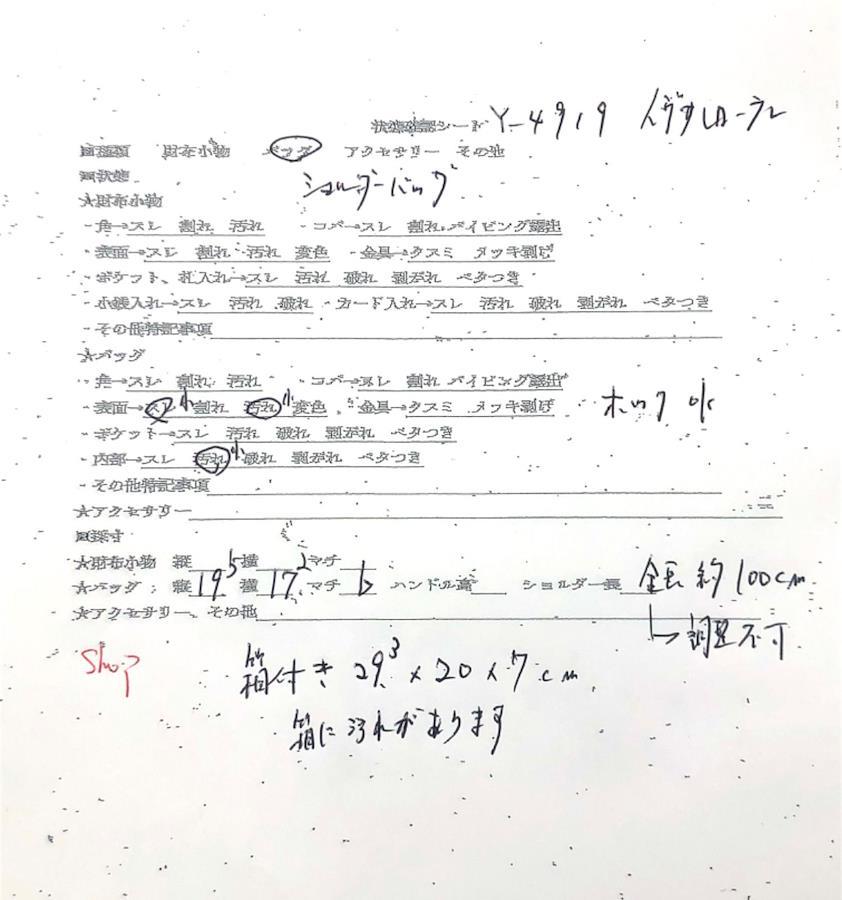 状態確認シート Y-4919 イヴサンローラン
■種類 財布小物 バッグ アクセサリー その他
■状態 ショルダーバッグ
★財布小物
・角→スレ 割れ 汚れ ・コバ→スレ 割れ パイピング露出
・表面→スレ 割れ 汚れ 変色 ・金具→クスミ メッキ剥げ
・ポケット、札入れ→スレ 汚れ 破れ 剥がれ ベタつき
・小銭入れ→スレ 汚れ 破れ ・カード入れ→スレ 汚れ 破れ 剥がれ ベタつき
・その他特記事項
★バッグ
・角→スレ 割れ 汚れ ・コバ→スレ 割れ パイピング露出
・表面→スレ小 割れ 汚れ小 変色 ・金具→クスミ メッキ剥げ ホック
・ポケット→スレ 汚れ 破れ 剥がれ ベタつき
・内部→スレ 汚れ小 破れ 剥がれ ベタつき
・その他特記事項
★アクセサリー
■採寸
★財布小物 縦 横 マチ
★バッグ 縦 19.5 横 17.2 マチ 6 ハンドル高 ショルダー長 全長 約100cm
★アクセサリー、その他 ↳調整不可
Shop 箱付き 29.3×20×7cm
箱に汚れがあります